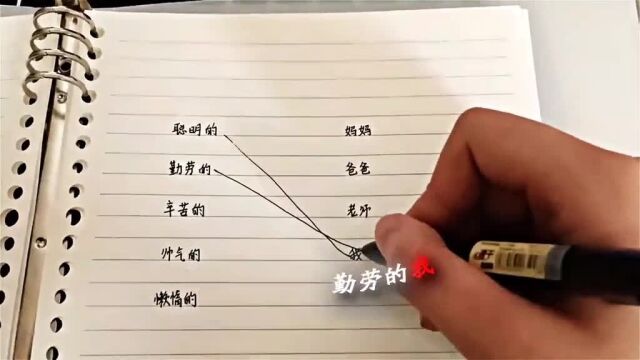 聪明的 妈妈
勤劳的 爸爸
辛苦的 老师
帅气的 我
勤劳的我
懒惰的